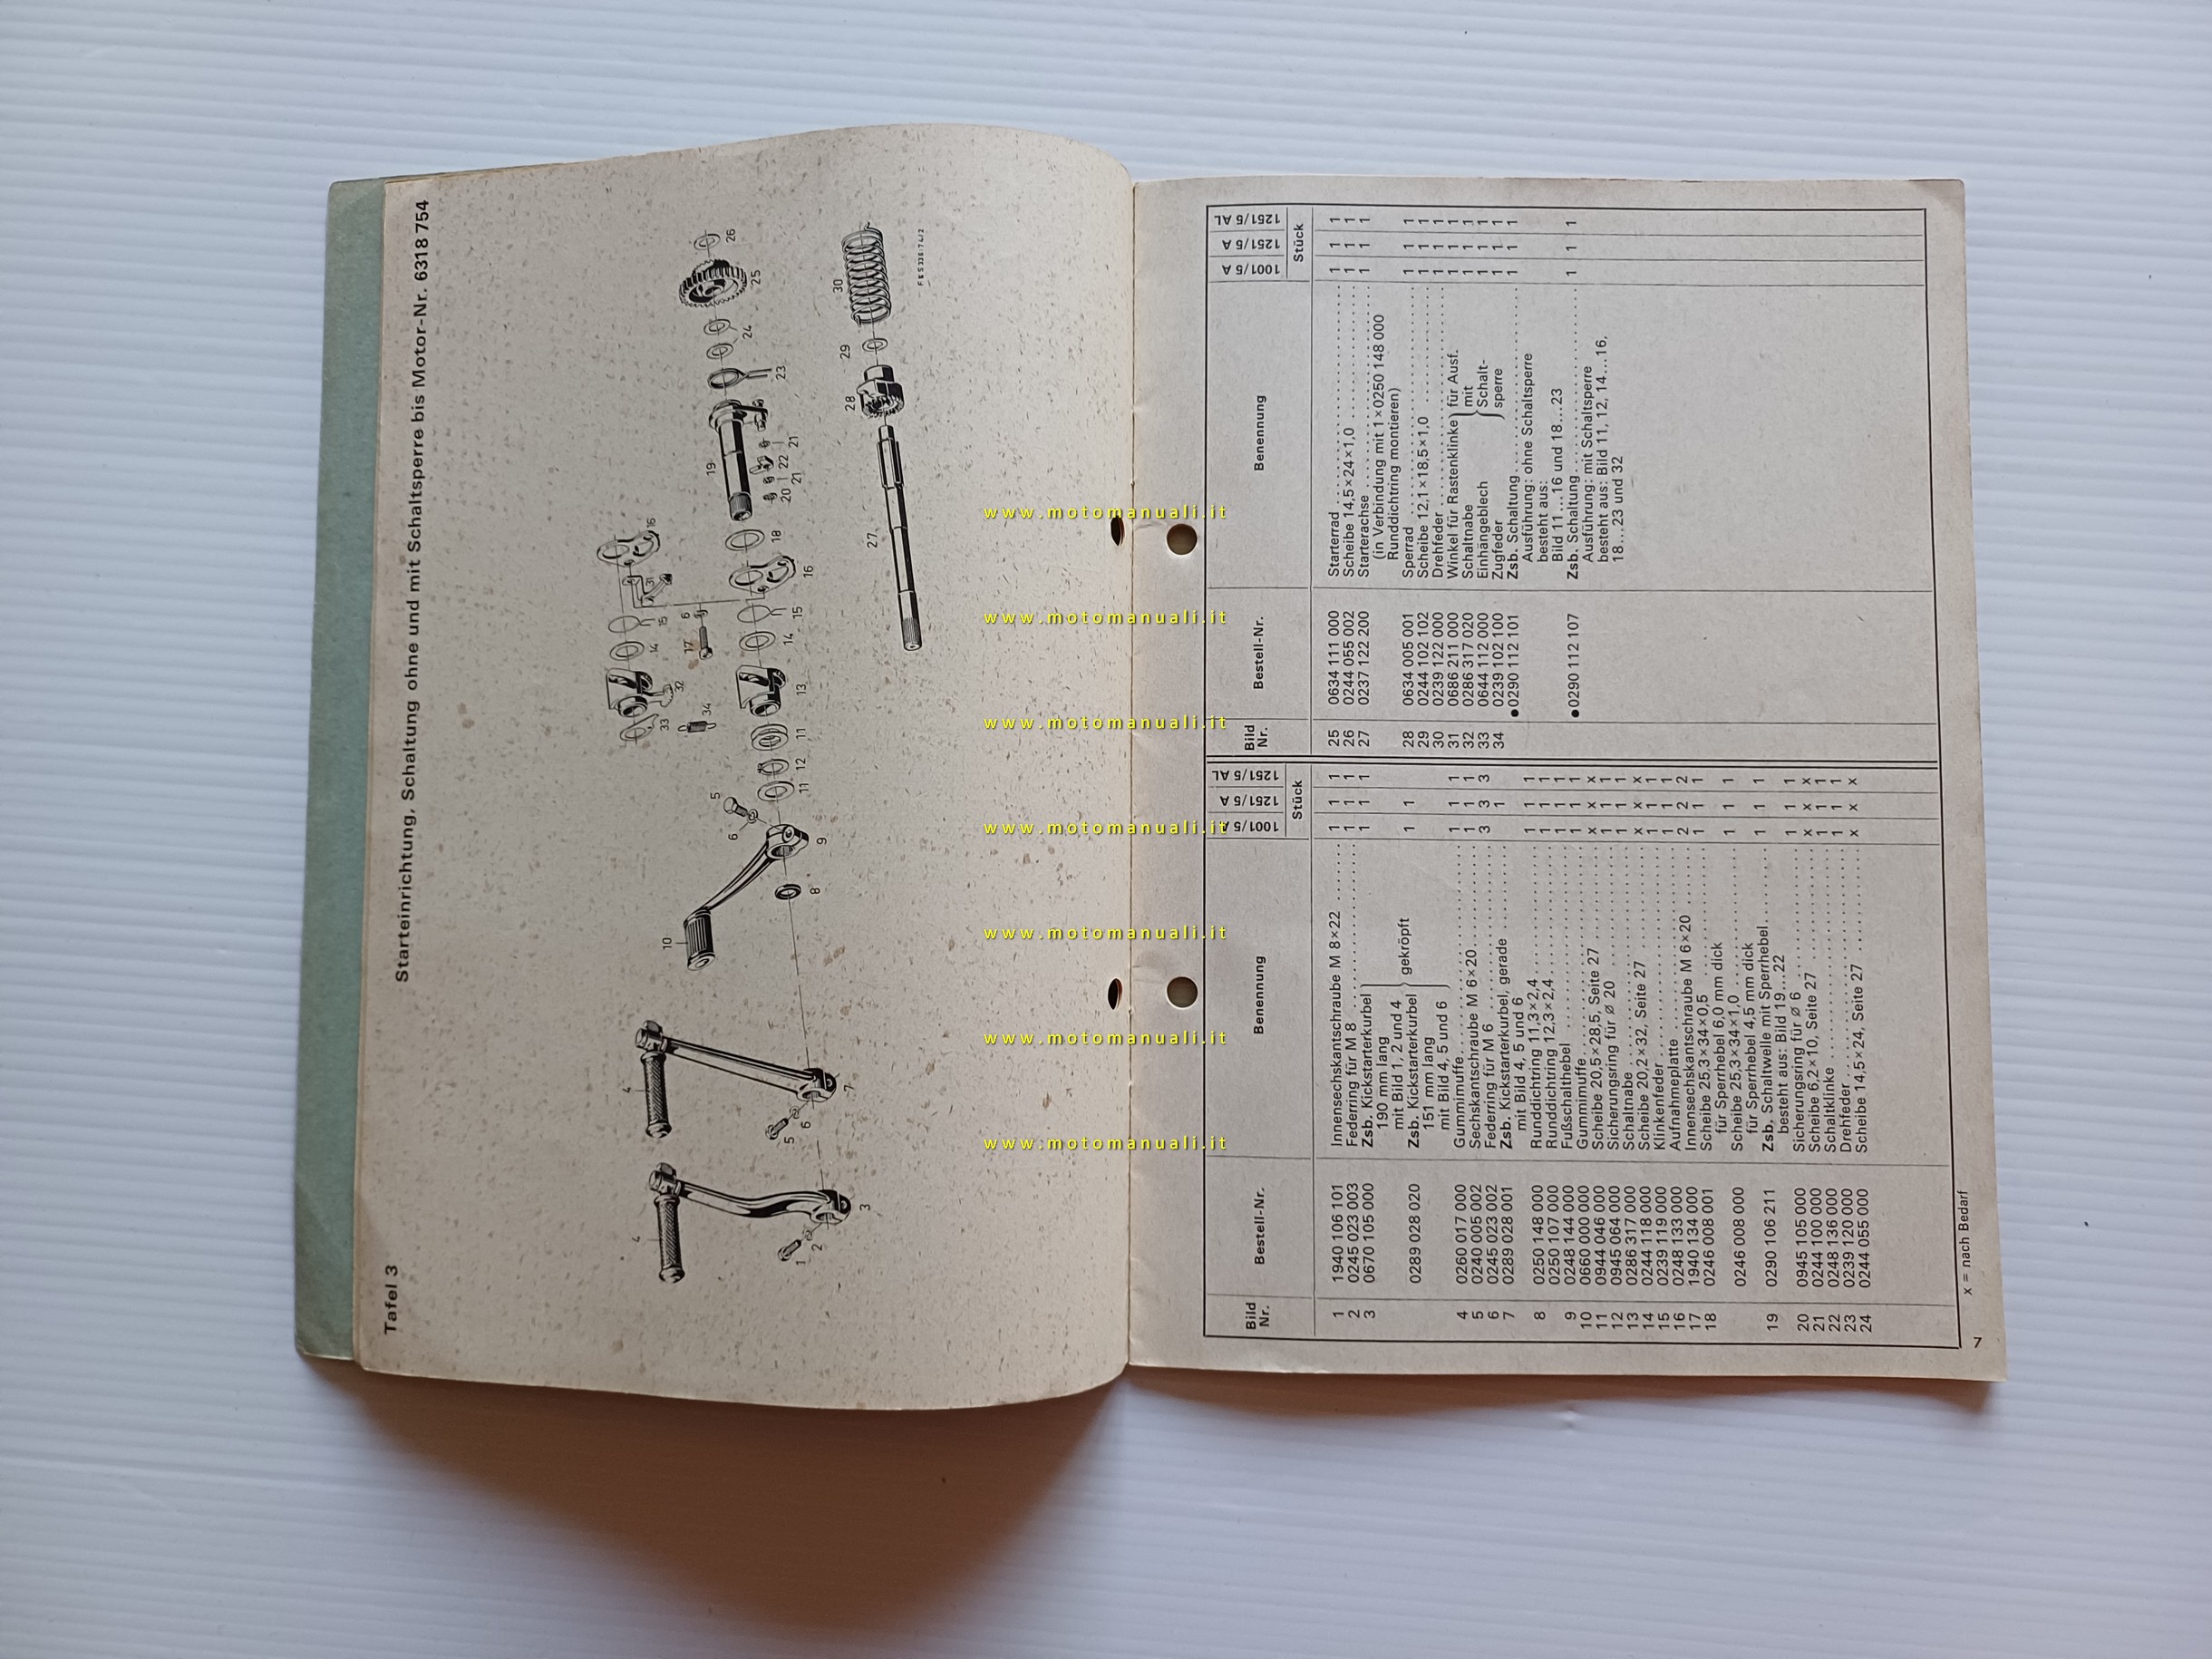 Tafel 3
Starteinrichtung, Schaltung ohne und mit Schaltsperre bis Motor-Nr. 6318 754
33 32 14 15 31 16
34 17 6
10 6 5 11 12 11 13 14 15 16 18 19 20 21 22 21 23 24 25 26
4 1 2 3
4 5 6 7 8 9
27 28 29 30
www.motomanuali.it
www.motomanuali.it
www.motomanuali.it
www.motomanuali.it
www.motomanuali.it
www.motomanuali.it
www.motomanuali.it
Bild Nr. Bestell-Nr. Benennung 1001/5 A 1251/5 A 1251/5 AL
Stück
1 1940 106 101 Innensechskantschraube M 8×22 1 1 1
2 0245 023 003 Federring für M 8 1 1 1
3 0670 105 000 Zsb. Kickstarterkurbel 1 1 1
190 mm lang
mit Bild 1, 2 und 4
gekröpft
0289 028 020 Zsb. Kickstarterkurbel 1 1
151 mm lang
mit Bild 4, 5 und 6
4 0260 017 000 Gummimuffe 1 1 1
5 0240 005 002 Sechskantschraube M 6×20 1 1 1
6 0245 023 002 Federring für M 6 3 3 3
7 0289 028 001 Zsb. Kickstarterkurbel, gerade 1
mit Bild 4, 5 und 6
8 0250 148 000 Runddichtring 11,3×2,4 1 1 1
0250 107 000 Runddichtring 12,3×2,4 1 1 1
9 0248 144 000 Fußschalthebel 1 1 1
10 0660 000 000 Gummimuffe 1 1 1
11 0944 046 000 Scheibe 20,5×28,5, Seite 27 x x x
12 0945 064 000 Sicherungsring für ø 20 1 1 1
13 0286 317 000 Schaltnabe 1 1 1
14 0244 118 000 Scheibe 20,2×32, Seite 27 x x x
15 0239 119 000 Klinkenfeder 1 1 1
16 0248 133 000 Aufnahmeplatte 1 1 1
17 1940 134 000 Innensechskantschraube M 6×20 2 2 2
18 0246 008 001 Scheibe 25,3×34×0,5 1 1 1
für Sperrhebel 6,0 mm dick
0246 008 000 Scheibe 25,3×34×1,0 1 1 1
für Sperrhebel 4,5 mm dick
19 0290 106 211 Zsb. Schaltwelle mit Sperrhebel 1 1 1
besteht aus: Bild 19...22
20 0945 105 000 Sicherungsring für ø 6 1 1 1
21 0244 100 000 Scheibe 6,2×10, Seite 27 x x x
22 0248 136 000 Schaltklinke 1 1 1
23 0239 120 000 Drehfeder 1 1 1
24 0244 055 000 Scheibe 14,5×24, Seite 27 x x x
Bild Nr. Bestell-Nr. Benennung 1001/5 A 1251/5 A 1251/5 AL
Stück
25 0634 111 000 Starterrad 1 1 1
26 0244 055 002 Scheibe 14,5×24×1,0 1 1 1
27 0237 122 200 Starterachse 1 1 1
(in Verbindung mit 1×0250 148 000
Runddichtring montieren)
28 0634 005 001 Sperrad 1 1 1
29 0244 102 102 Scheibe 12,1×18,5×1,0 1 1 1
30 0239 122 000 Drehfeder 1 1 1
31 0686 211 000 Winkel für Rastenklinke für Ausf. 1 1 1
32 0286 317 020 Schaltnabe mit 1 1 1
33 0644 112 000 Einhängeblech Schalt- 1 1 1
34 0239 102 100 Zugfeder sperre 1 1 1
●0290 112 101 Zsb. Schaltung 1 1 1
Ausführung: ohne Schaltsperre
besteht aus:
Bild 11...16 und 18...23
●0290 112 107 Zsb. Schaltung 1 1 1
Ausführung: mit Schaltsperre
besteht aus: Bild 11, 12, 14...16,
18...23 und 32
x = nach Bedarf
7